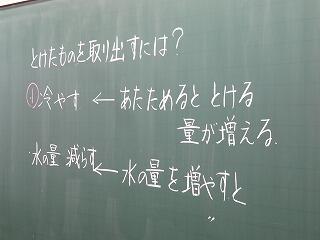 とけたものを取り出すには?
①冷やす ← あたためると とける
量が増える.
水の量 減らす ← 水の量を増やすと
〃